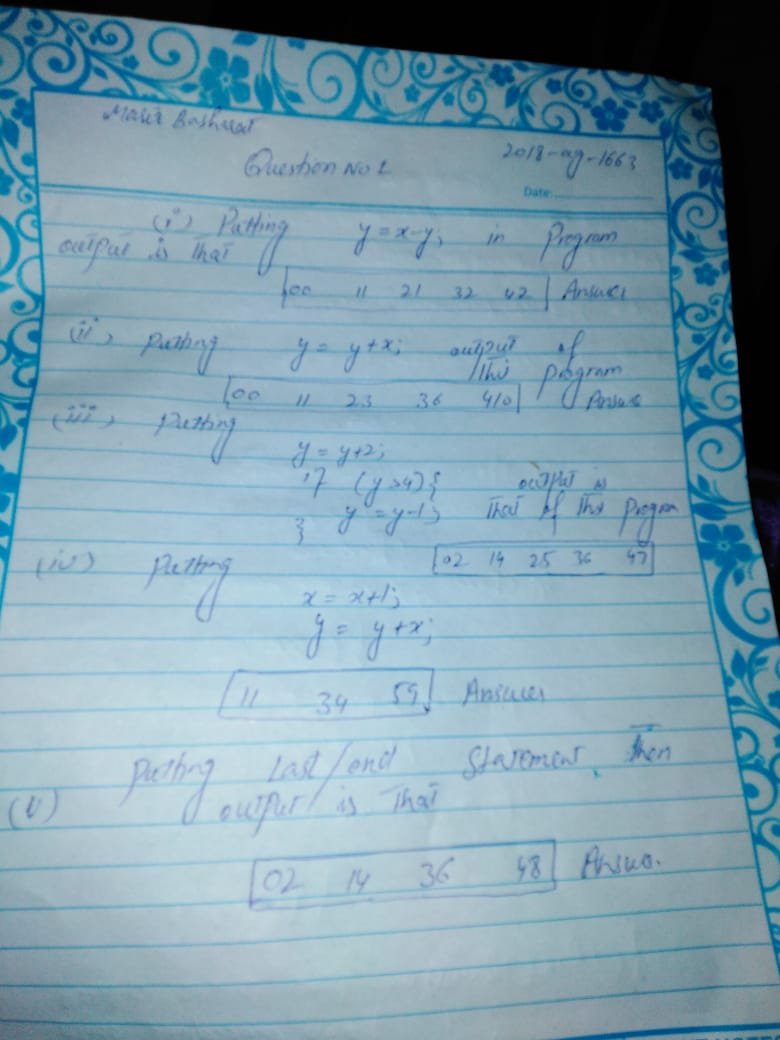 Question No 1
2018-ag-1663
Date:
(i) Putting y = x-y; in Program
output is that
00 11 21 32 42 Answer
(ii) Putting y = y+x; output of
this Program
00 11 23 36 410 Answer
(iii) Putting
y = y+2;
if (y>4){ output is
y = y-1; that of this Program
}
02 14 25 36 47
(iv) Putting
x = x+1;
y = y+x;
11 34 59 Answer
Putting Last/end Statement, then
(v) output is that
02 14 36 48 Answer.